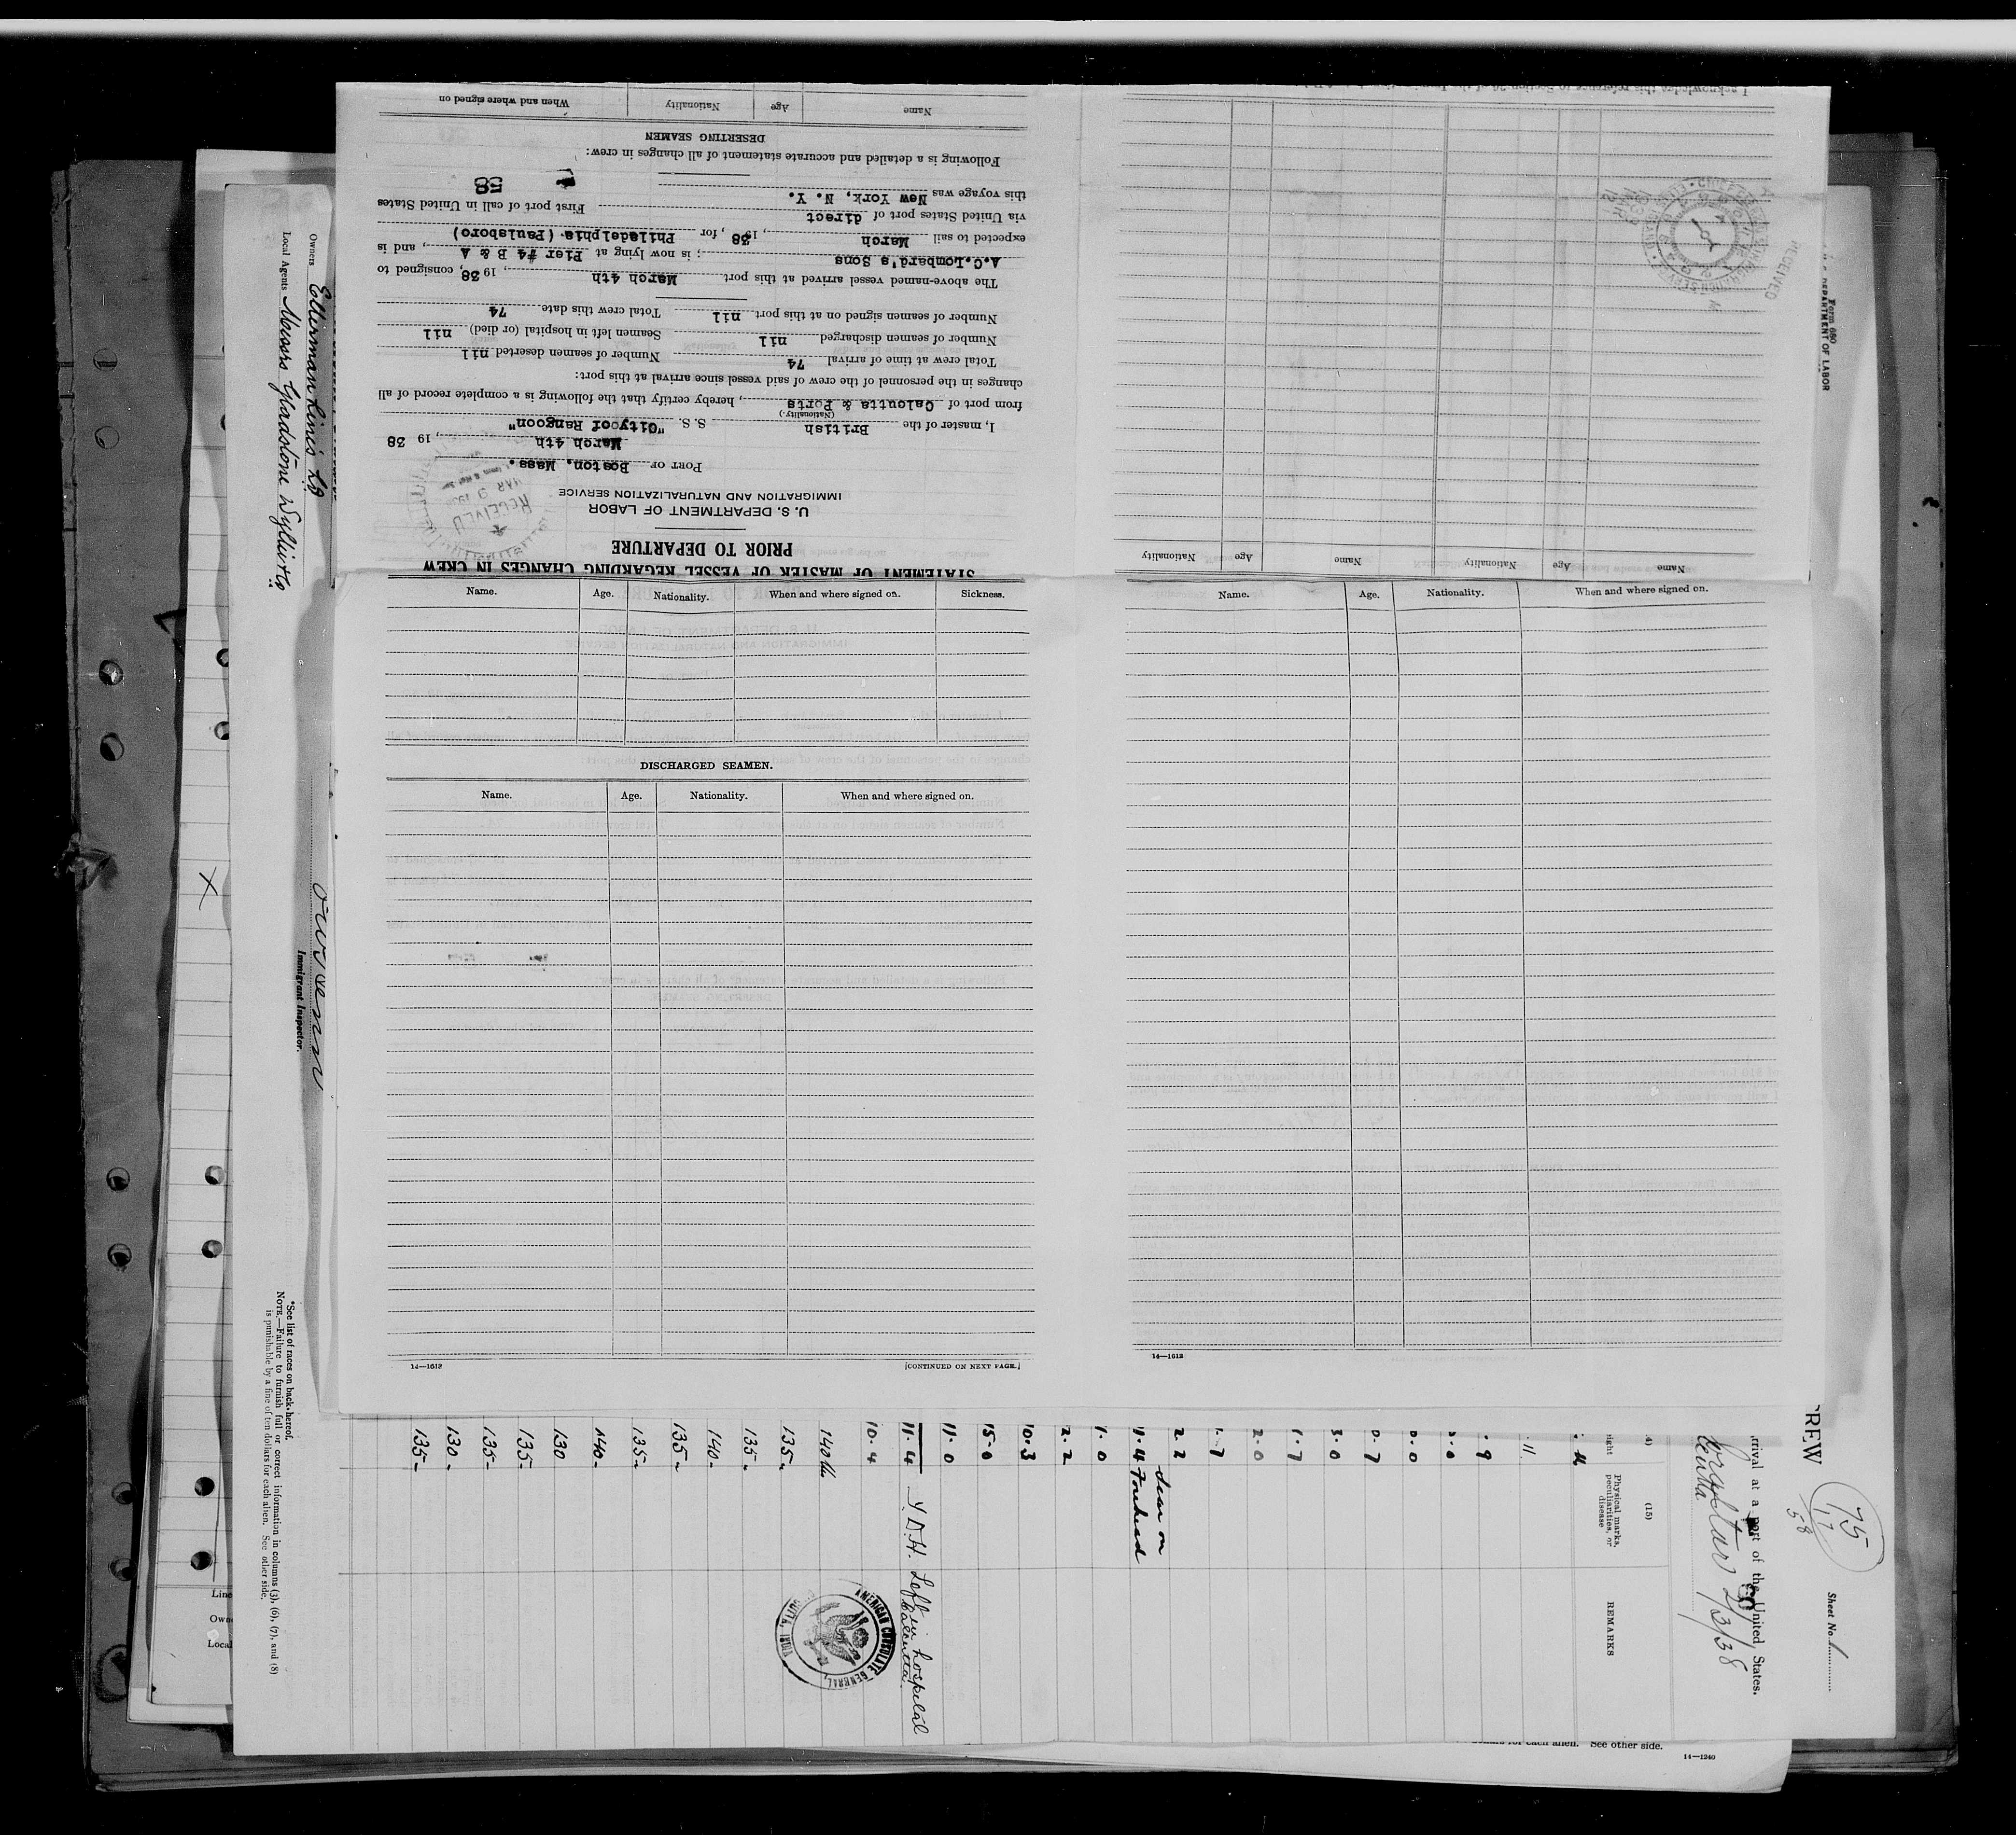 STATEMENT OF MASTER OF VESSEL REGARDING CHANGES IN CREW
PRIOR TO DEPARTURE
U. S. DEPARTMENT OF LABOR
IMMIGRATION AND NATURALIZATION SERVICE
RECEIVED
MAR 9
PORT OF Boston, Mass.
March 4th, 19 38
I, master of the British S. S. "City of Rangoon"
(Nationality.)
from port of Calcutta & Ports, hereby certify that the following is a complete record of all
changes in the personnel of the crew of said vessel since arrival at this port:
Total crew at time of arrival 74 Number of seamen deserted nil
Number of seamen discharged nil Seamen left in hospital (or died) nil
Number of seamen signed on at this port nil Total crew this date 74
The above-named vessel arrived at this port March 4th, 19 38, consigned to
A.C.Lombard's Sons; is now lying at Pier #4 B & A, and is
expected to sail March, 19 38, for Philadelphia (Paulsboro)
via United States port of direct First port of call in United States
this voyage was New York, N. Y.
58
Following is a detailed and accurate statement of all changes in crew:
DESERTING SEAMEN
Name Age Nationality When and where signed on
Name Age Nationality Name Age Nationality
RECEIVED
Name. Age. Nationality. When and where signed on. Sickness.
DISCHARGED SEAMEN.
Name. Age. Nationality. When and where signed on.
14—1613
[CONTINUED ON NEXT PAGE.]
Name. Age. Nationality. When and where signed on.
14—1613
Form 680
DEPARTMENT OF LABOR
Owners Ellerman Lines Ld
Local Agents Messrs Gladstone Wyllie & Co
Immigrant Inspector.
*See list of races on back hereof.
NOTE.—Failure to furnish full or correct information in columns (3), (6), (7), and (8)
is punishable by a fine of ten dollars for each alien. See other side.
CREW
75
17
58
Sheet No. 1
rrival at a port of the United States.
2/3/38
(15)
Physical marks, peculiarities, or disease
REMARKS
Scar on
11.4 Forehead
2.2
1.0
2.2
10.3
15.0
11.0
11.44 Left in hospital
Calcutta
10.4
140 lb
135
135
140
135
135
140
130
135
135
130
135
AMERICAN CONSULATE GENERAL
Line
Owne
Local
See other side.
14—1240